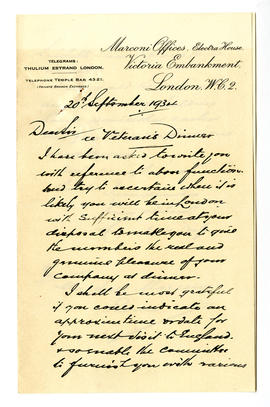 Marconi Offices, Electra House
TELEGRAMS:
THULIUM ESTRAND LONDON.
Victoria Embankment,
TELEPHONE TEMPLE BAR 4321.
(PRIVATE BRANCH EXCHANGE)
London. W.C.2.
20th September 1934
Dear Sir
re Veterans Dinner
I have been asked to write you
with reference to above function
and try to ascertain when it is
likely you will be in London
with sufficient time at your
disposal to enable you to give
the members the real and
genuine pleasure of your
company at dinner.
I shall be most grateful
if you could indicate an
approximate time or date for
your next visit to England.
& so enable the committee
to furnish you with various